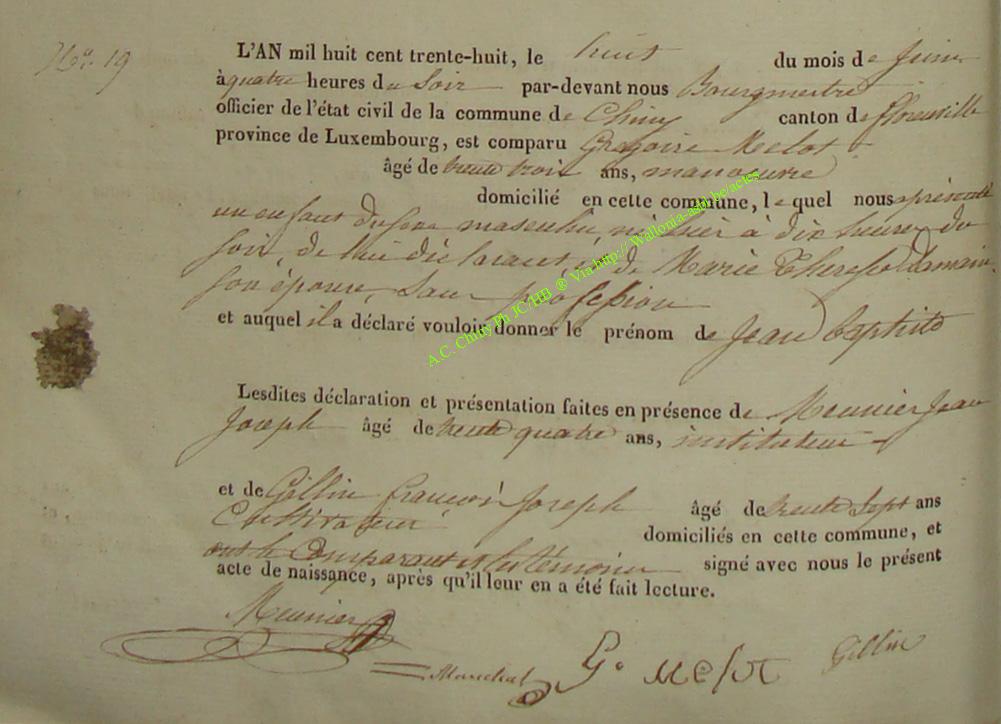 No. 19
L'AN mil huit cent trente-huit, le huit du mois de Juin
à quatre heures du Soir par-devant nous Bourgmestre
officier de l'état civil de la commune de Chiny canton de florenville
province de Luxembourg, est comparu Gregoire Melot
âgé de trente trois ans, manoeuvre
domicilié en cette commune, lequel nous a présenté
un enfant du sexe masculin, né hier à dix heures du
soir, de lui déclarant et de Marie Therese
son épouse, sans profession
et auquel il a déclaré vouloir donner le prénom de Jean baptiste
Lesdites déclaration et présentation faites en présence de Meunier Jean
Joseph âgé de trente quatre ans, instituteur
et de Gillin francois Joseph âgé de trente sept ans
Cultivateur domiciliés en cette commune, et
ont le Comparant et les témoins signé avec nous le présent
acte de naissance, après qu'il leur en a été fait lecture.
Meunier
Maréchal G. Melot Gillin
A.C. Chiny Ph JC/HB ® Via http:// Wallonia-asbl.be/actes